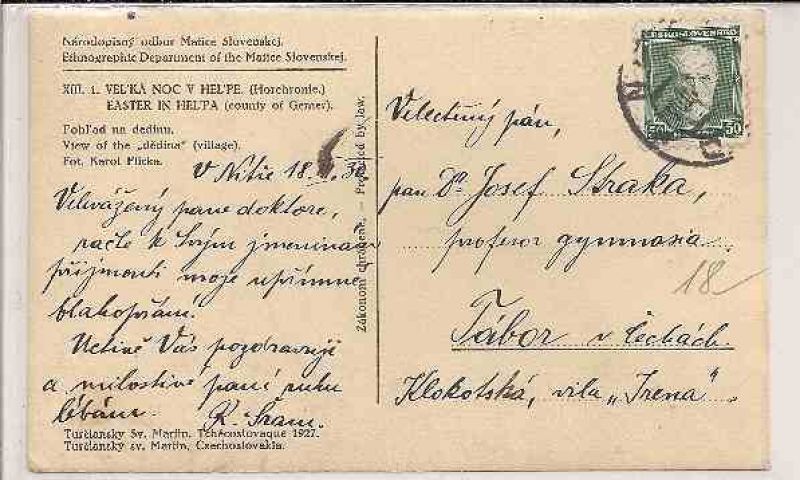 Národopisný odbor Matice Slovenskej.
Ethnographic Department of the Matice Slovenskej.
XIII. 1. VEĽKÁ NOC V HEĽPE. (Horehronie.)
EASTER IN HEĽPA (county of Gemer).
Pohľad na dedinu.
View of the „dědina" (village).
Fot. Karol Plicka.
V Nitře 18.
Velevážený pane doktore,
račte k Svým jmeninám
přijmouti moje upřímné
blahopřání!
Uctivě Vás pozdravuji
a milostivé paní ruku
líbám. K. Šram.
Turčiansky Sv. Martin. Tchécoslovaque 1927.
Turčiansky sv. Martin, Czechoslovakia.
Zákonom chránené. — Protected by law.
ČESKOSLOVENSKO
50 50
Velectěný pán,
pan Dr. Josef Straka,
profesor gymnasia
18
Tábor v Čechách.
Klokotská, vila „Irena".